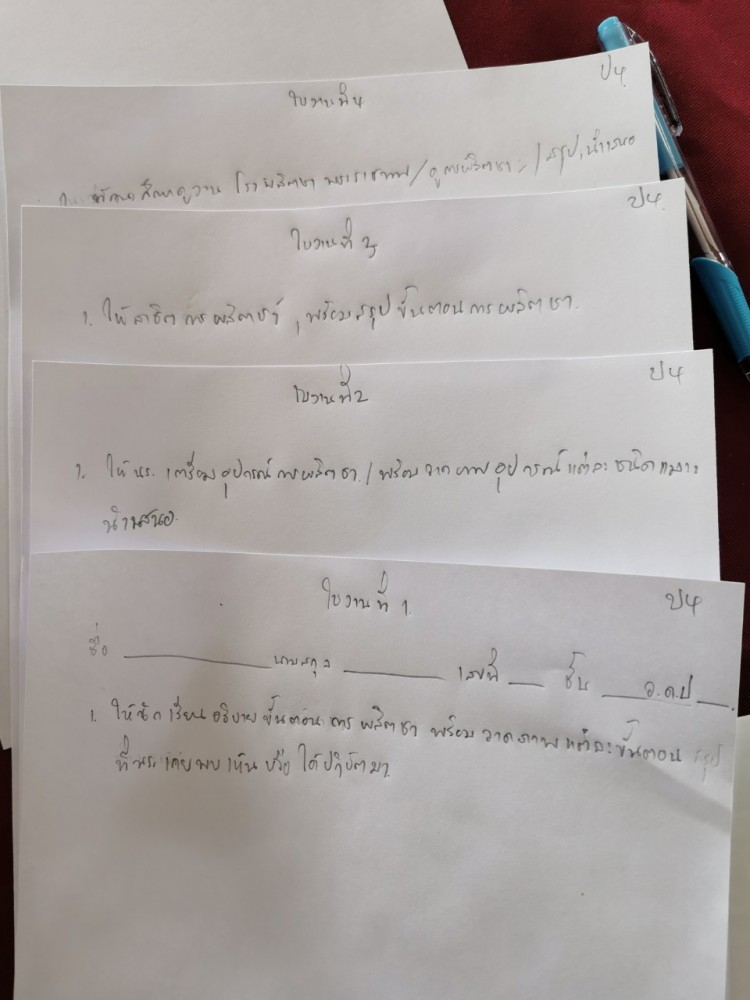 ใบงานที่ 4
ป4.
ศึกษาดูงาน โรงผลิตชา / ดูการผลิตชา / สรุป, นำเสนอ
ใบงานที่ 3
ป4.
1. ให้สาธิตการผลิตชา , พร้อมสรุปขั้นตอนการผลิตชา.
ใบงานที่ 2
ป4
1. ให้ นร. เตรียมอุปกรณ์การผลิตชา / พร้อมวาดภาพอุปกรณ์แต่ละชนิด
นำเสนอ.
ใบงานที่ 1.
ป4
ชื่อ นามสกุล เลขที่ ชั้น ว.ด.ป
1. ให้นักเรียนอธิบายขั้นตอนการผลิตชา พร้อมวาดภาพแต่ละขั้นตอน สรุป
ที่ นร. เคยพบเห็น หรือ ได้ปฏิบัติมา